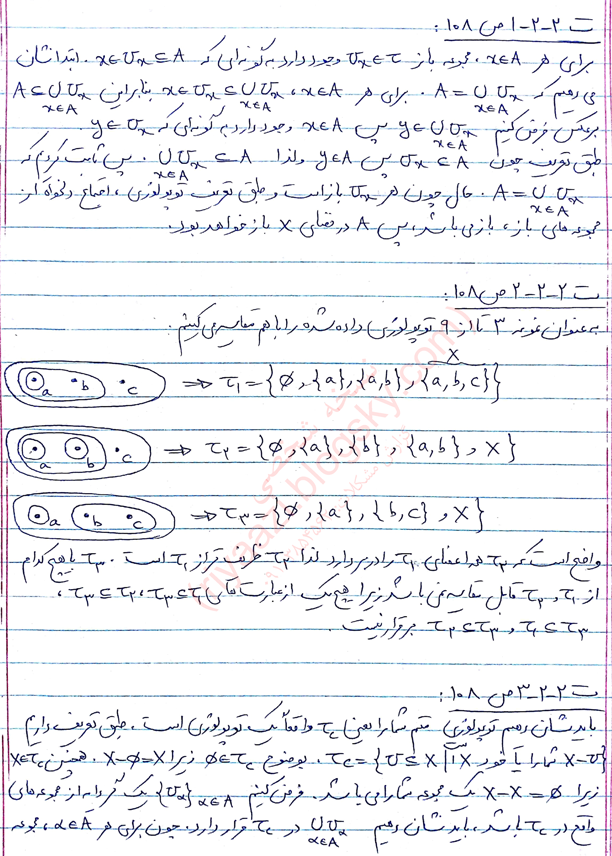 ت ۲-۲-۱ ص ۱۰۸:
برای هر x∈A، مجموعه باز Uₓ∈τ وجود دارد به گونه‌ای که x∈Uₓ⊆A. ابتدا نشان
می دهیم که A=⋃_{x∈A} Uₓ. برای هر x∈A، x∈Uₓ⊆⋃_{x∈A} Uₓ بنابراین A⊆⋃_{x∈A} Uₓ
برعکس فرض کنیم y∈⋃_{x∈A} Uₓ پس x∈A وجود دارد به گونه‌ای که y∈Uₓ.
طبق تعریف چون Uₓ⊆A پس y∈A ولذا ⋃_{x∈A} Uₓ⊆A. پس ثابت کردیم که
A=⋃_{x∈A} Uₓ. حال چون هر Uₓ باز است و طبق تعریف توپولوژی، اجتماع دلخواه از
مجموعه های باز، باز می باشد، پس A در فضای X باز خواهد بود.
ت ۲-۲-۲ ص ۱۰۸:
به عنوان نمونه ۳ تا از ۹ توپولوژی داده شده را با هم مقایسه می کنیم.
X
a b c ⇒ τ₁={∅,{a},{a,b},{a,b,c}}
a b c ⇒ τ₂={∅,{a},{b},{a,b},X}
a b c ⇒ τ₃={∅,{a},{b,c},X}
واضح است که τ₂ هر اعضای τ₁ را در بر دارد لذا τ₂ ظریف تر از τ₁ است. τ₃ با هیچ کدام
از τ₁ و τ₂ قابل مقایسه نمی باشد زیرا هیچ یک از عبارت های τ₃⊆τ₁، τ₃⊆τ₂،
τ₁⊆τ₃ و τ₂⊆τ₃ برقرار نیست.
ت ۲-۲-۳ ص ۱۰۸:
باید نشان دهیم توپولوژی متمم شمارا یعنی τc واقعاً یک توپولوژی است. طبق تعریف داریم
τc={U⊆X | X-U شمارا یا خود X}. بوضوح ∅∈τc زیرا X-∅=X. همچنین X∈τc
زیرا X-X=∅ یک مجموعه شمارا می باشد. فرض کنیم {Uα}α∈A یک گردایه از مجموعه های
واقع در τc باشد، باید نشان دهیم ⋃_{α∈A} Uα در τc قرار دارد. چون برای هر α∈A، مجموعه